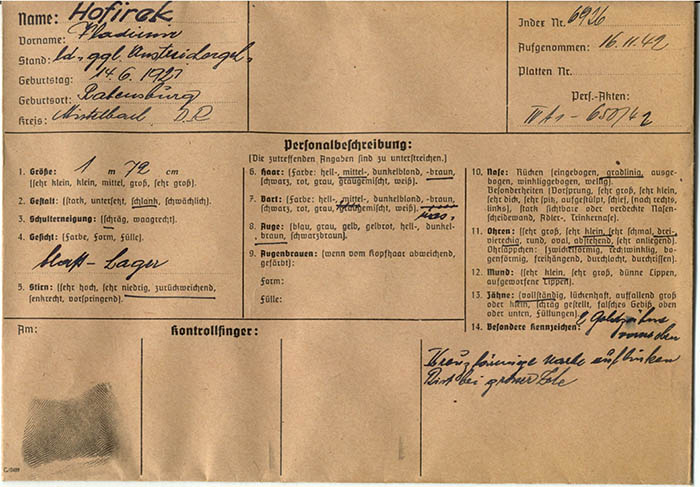 Name: Hofirek
Vorname: Vladimir
Stand: ld., ggl.
Geburtstag: 14.6.1921
Geburtsort: Rabensburg
Kreis: Mistelbach D.R.
Index Nr. 6926
Aufgenommen: 16.11.42
Platten Nr.
Pers.-Akten:
IV A1 - 650/42
Personalbeschreibung:
(Die zutreffenden Angaben sind zu unterstreichen.)
1. Größe: 1 m 72 cm
(sehr klein, klein, mittel, groß, sehr groß).
2. Gestalt: (stark, untersetzt, schlank, schwächlich).
3. Schulterneigung: (schräg, waagerecht).
4. Gesicht: (Farbe, Form, Fülle).
blass -
5. Stirn: (sehr hoch, sehr niedrig, zurückweichend,
senkrecht, vorspringend).
6. Haar: (Farbe: hell-, mittel-, dunkelblond, -braun,
schwarz, rot, grau, graugemischt, weiß).
7. Bart: (Farbe: hell-, mittel-, dunkelblond, -braun,
schwarz, rot, grau, graugemischt, weiß).
8. Auge: (blau, grau, gelb, gelbrot, hell-, dunkel-
braun, schwarzbraun).
9. Augenbrauen: (wenn vom Kopfhaar abweichend,
gefärbt):
Form:
Fülle:
10. Nase: Rücken (eingebogen, gradlinig, ausge-
bogen, winkliggebogen, wellig).
Besonderheiten (Vorsprung, sehr groß, sehr klein,
sehr dick, sehr spitz, aufgestülpt, schief, (nach rechts,
links), stark sichtbare oder verdeckte Nasen-
scheidewand, Adler-, Trinkernase).
11. Ohren: (sehr groß, sehr klein, sehr schmal, drei-,
viereckig, rund, oval, abstehend, sehr anliegend).
Ohrläppchen: (zwickelförmig, rechtwinklig, bo-
genförmig, freihängend, durchlocht, durchrissen).
12. Mund: (sehr klein, sehr groß, dünne Lippen,
aufgeworfene Lippen).
13. Zähne: (vollständig, lückenhaft, auffallend groß
oder klein, schräg gestellt, falsches Gebiß, oben
oder unten, Füllungen).
14. Besondere Kennzeichen: 2 Goldzähne
Kreuzförmige Narbe auf linken
Rist bei großer Zehe
Am:
Kontrollfinger: